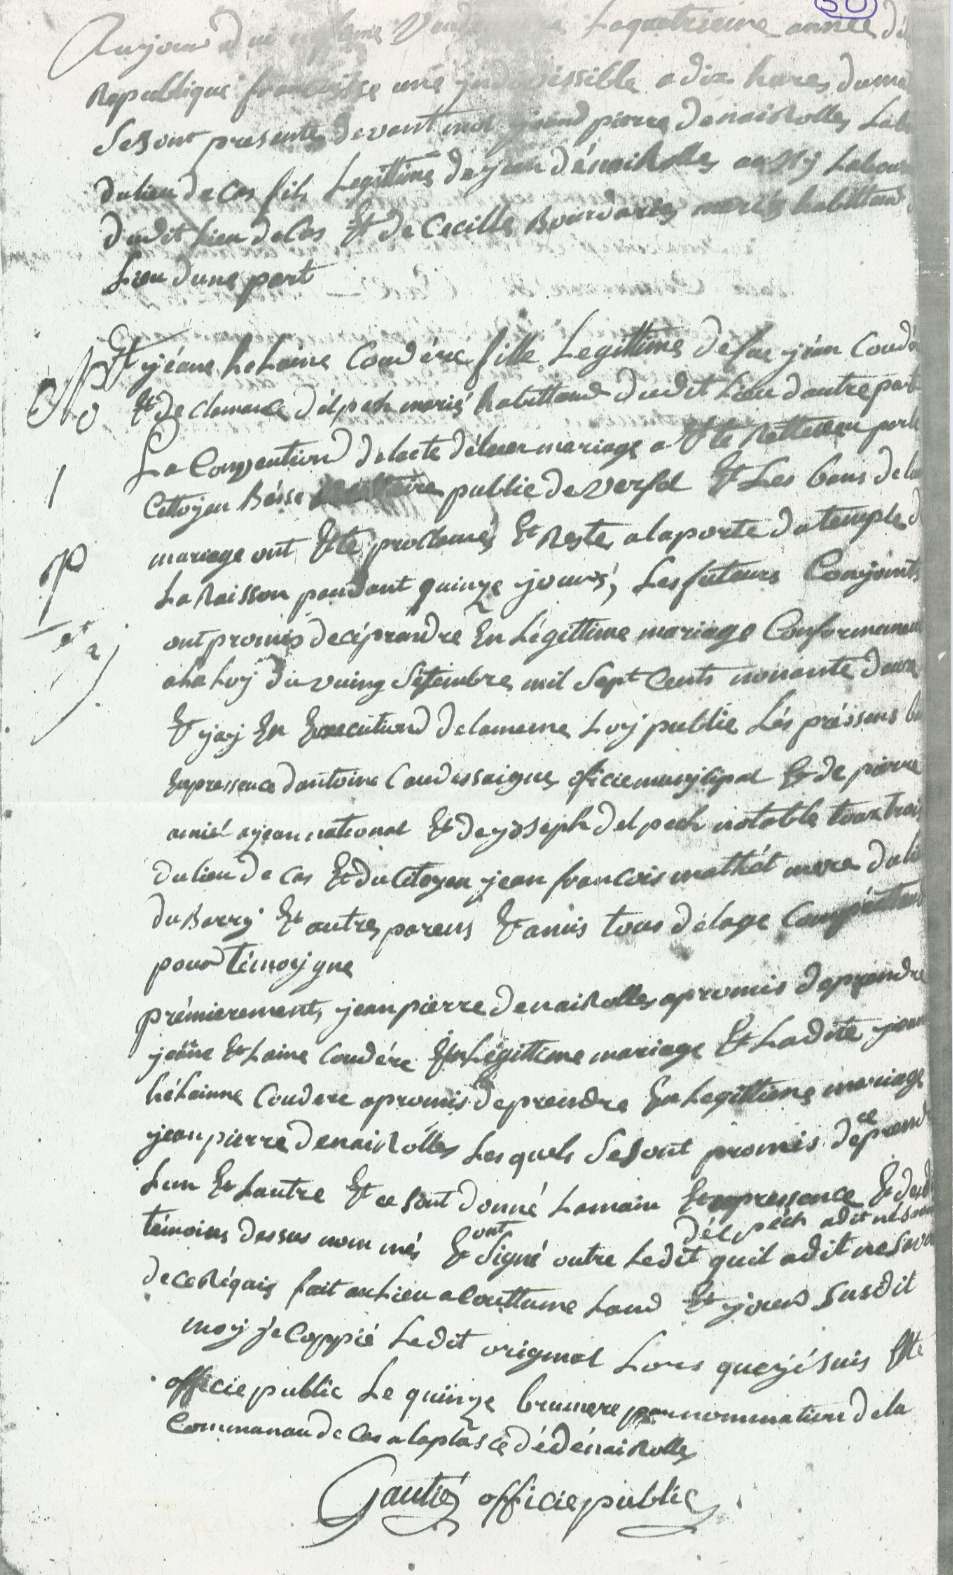 50
Aujourdui Vend laquatrieme année dé
Republique francoisse une yndivissible a dix hures dumat
Sesont presentes devant moi pierre Dénairolles Labo
Dulieu de Cas fils Legittime de jean dénairolles aussy Labour
Dudit Lieu de Cas Et de Cecille Bourdaries mariés habittans
Lieu dune part
Et jéane helaine Coudére fille Legittime de fue jean Coudé
Et de clemance délpech mariés habittans dudit Lieu dautre part
La Convention delacte déleur mariage a Eté Rettenu par le
Cittoyen Bésse public de verfel Et Les bans de la
mariage ont Eté proclamés Et Restes a laporte du temple d
La Raisson pandant quinze jours, Les futeurs Conjoints
ont promis de cé prandre En Légittime mariage Conformement
a la Loy du vuing Sétembre mil Sept Cents nonante deux
Et jay En Execution delameme Loy publié Lés préssens
Enpressence dantoine Caudessaigues oficie munysipal Et de pierre
amiel ajean national Et de joseph delpech notable tous trois
du lieu de Cas Et du Citoyen jean francois mathét mere du li
du Barry Et autres parens Et amis tous délage Conpétant
pour témoygne
prémierement, jean pierre denairolles apromis de prandre
jeane Elaine Coudére En Légittime mariage Et Ladite jeane
hélainne Coudere apromis de prendre En Legittime mariage
jean pierre denairólles Les quels Sesont promis de ce prendre
Lun Et Lautre Et ce sont donné Lamain En pressance Et des
témoins dessus nommés Et ont Signé outre Ledit délpéch qui a dit ne savoir
de ce Réquis fait au Lieu acouttumé Land Et jours Susdit
moy je Coppié Ledit original Lors que jé suis Eté
officie public Le quinze brumere par nomination de la
Communau de Cas a laplasse de dénairolles
Gautié officie public